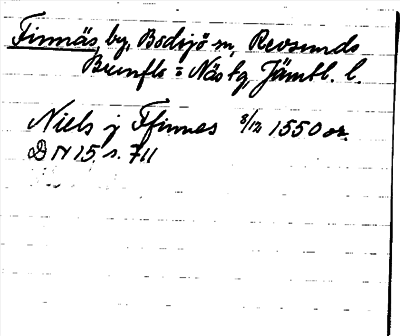 Finnäs, by, Bodsjö sn, Revsunds
Brunflo = Näs tg, Jämtl. l.
Niels j Ffinnes 8/12 1550 or.
DN 15 s. 711